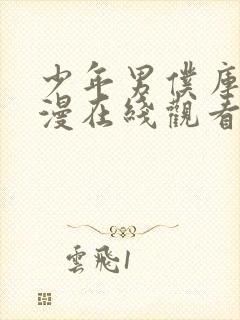 少年男僕庫
漫在綫觀看
雲飛1